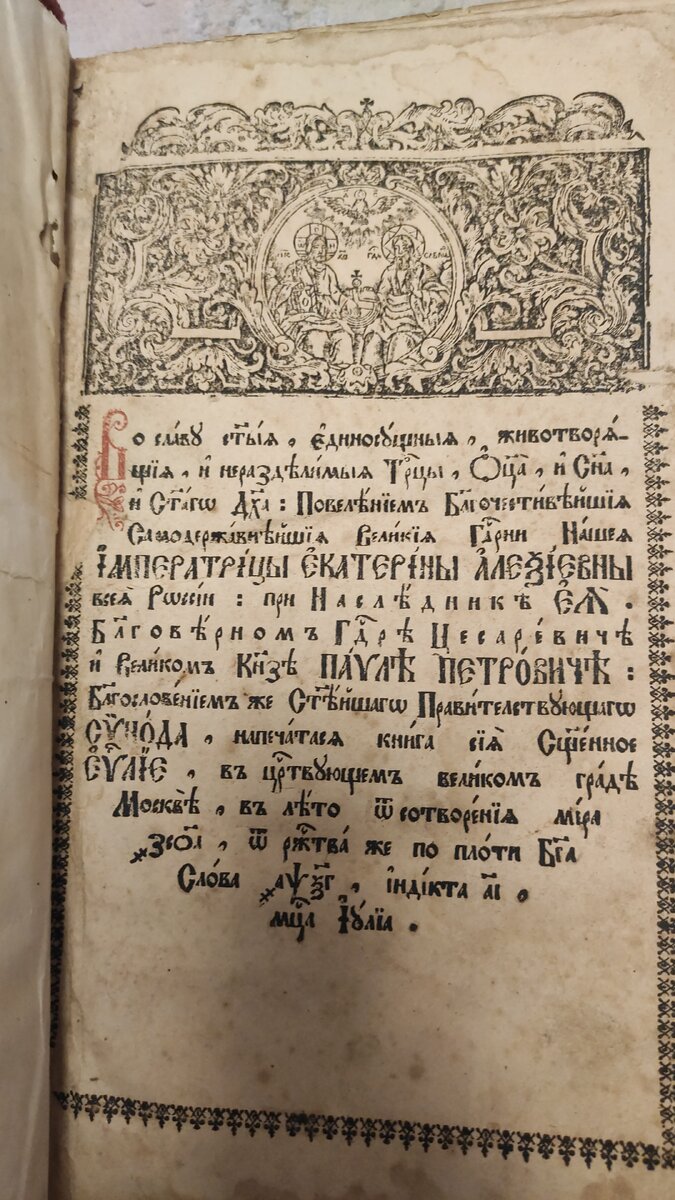 І҃С Х҃С ГДⷭ҇Ь САВАѠ҆Ѳ
Во сла́ву ст҃ы́ѧ , є҆диносꙋ́щныѧ , животворѧ́-
щїѧ , и҆ нераздѣли́мыѧ Трⷪ҇цы , Ѻ҆ц҃а̀ , и҆ Сн҃а ,
и҆ Ст҃а́гѡ Дх҃а : Повелѣ́нїемъ Бл҃гочести́вѣйшїѧ
Самодержа́внѣйшїѧ Вели́кїѧ Гдⷭ҇рни На́шеѧ
І҆МПЕРАТРІ́ЦЫ Є҆КАТЕРІ́НЫ А҆ЛЕѮІ́ЕВНЫ
всеѧ̀ Рѡссі́и : при Наслѣ́дникѣ Є҆Ѧ̀ .
Бл҃говѣ́рномъ Гдⷭ҇рѣ Цесаре́вичѣ
и҆ Вели́комъ Кн҃зѣ ПА́ѴЛѢ ПЕТРО́ВИЧѢ :
Бл҃гослове́нїемъ же Ст҃ѣ́йшагѡ Прави́телствующагѡ
СѴНО́ДА , напеча́тасѧ кни́га сїѧ̀ Сщ҃е́нное
Є҆Ѵⷢ҇ЛІЕ , въ црⷭ҇твующемъ вели́комъ гра́дѣ
Москвѣ̀ , въ лѣ́то ѿ сотворе́нїѧ мі́ра
҂зсо҃а , ѿ ржⷭ҇тва́ же по пло́ти Бг҃а
Сло́ва ҂аѱѯ҃г , і҆нді́кта а҃і ,
мцⷭ҇а І҆у́лїа .